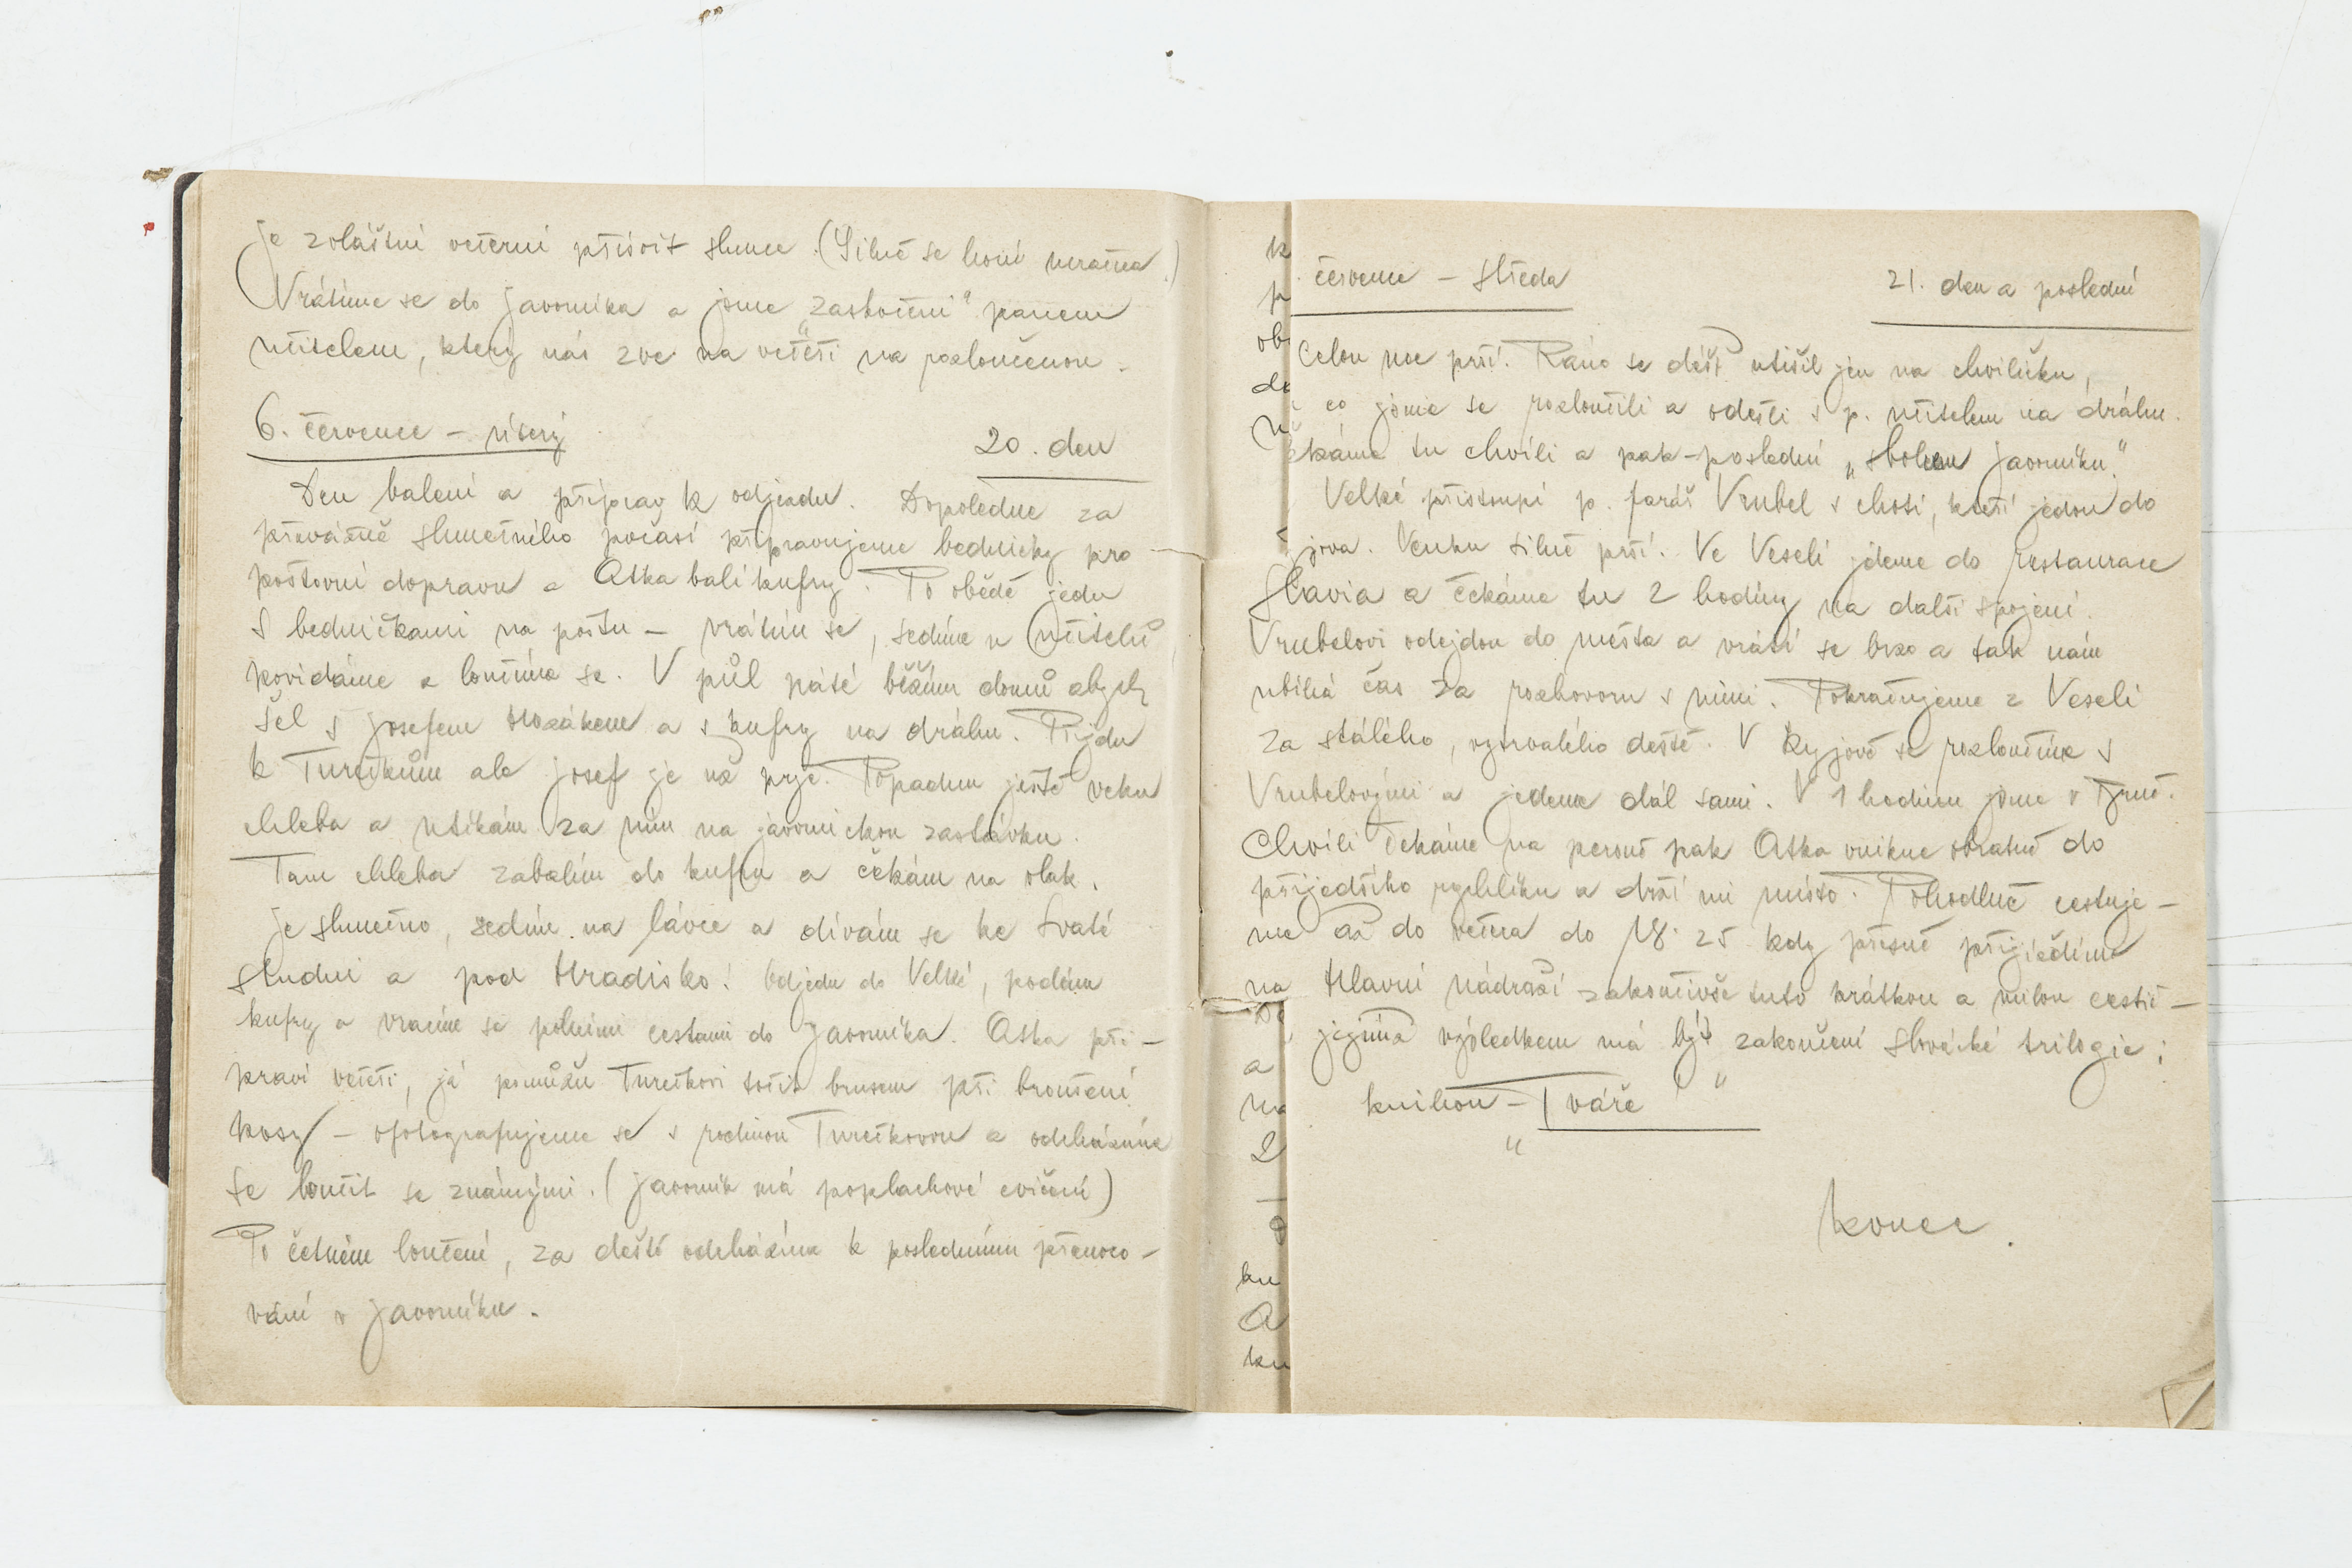 je zvláštní večerní přísvit slunce. (Silně se honí mračna.)
Vrátíme se do Javorníka a jsme „zaskočeni“ panem
učitelem, který nás zve na večeři na rozloučenou.
6. července - úterý
20. den
Den balení a příprav k odjezdu. Dopoledne za
převážně slunečného počasí připravujeme bedničky pro
poštovní dopravu a Aťka balí kufry. Po obědě jedu
s bedničkami na poštu - vrátím se, sedíme u učitelů
povídáme a loučíme se. V půl páté běžím domů abych
šel s Josefem a s kufry na dráhu. Přijdu
k Turečkům ale Josef je už pryč. Popadnu ještě veku
chleba a utíkám za ním na javornickou zastávku.
Tam chleba zabalím do kufru a čekám na vlak.
Je slunečno, sedím na lávce a dívám se ke Svaté
studni a pod Hradisko! Odjedu do Velké, podám
kufry a vracím se polními cestami do Javorníka. Aťka při-
praví večeři, já pomůžu Turečkovi točit brusem při broušení
kosy - ofotografujeme se s rodinou Turečkovou a odcházíme
se loučit se známými. (Javorník má poplachové cvičení)
Po četném loučení, za deště odcházíme k poslednímu přenoco-
vání v Javorníku.
července - středa
21. den a poslední
Celou noc prší. Ráno se déšť utišil jen na chviličku,
co jsme se rozloučili a odešli s p. učitelem na dráhu.
čekáme tu chvíli a pak - poslední „sbohem Javorníku.“
Velké přistoupí p. farář Vrubel s chotí, kteří jedou do
jova. Venku silně prší. Ve Veselí jdeme do restaurace
Slavia a čekáme tu 2 hodiny na další spojení.
Vrubelovi odejdou do města a vrátí se brzo a tak nám
ubíhá čas za rozhovoru s nimi. Pokračujeme z Veselí
za stálého, vytrvalého deště. V Kyjově se rozloučíme s
Vrubelovými a jedeme dál sami. V 1 hodinu jsme v Brně.
Chvíli čekáme na peroně pak Aťka vnikne obratně do
přijedšího rychlíku a drží mi místo. Pohodlně cestuje-
me až do večera do 18.25 kdy přesně přijíždíme
na Hlavní nádraží zakončivše tuto krátkou a milou cestu -
jejímž výsledkem má být zakončení slovácké trilogie:
knihou - „Tváře“
konec.
k
p
ob
do
na
a
na
2
ku
A
ku